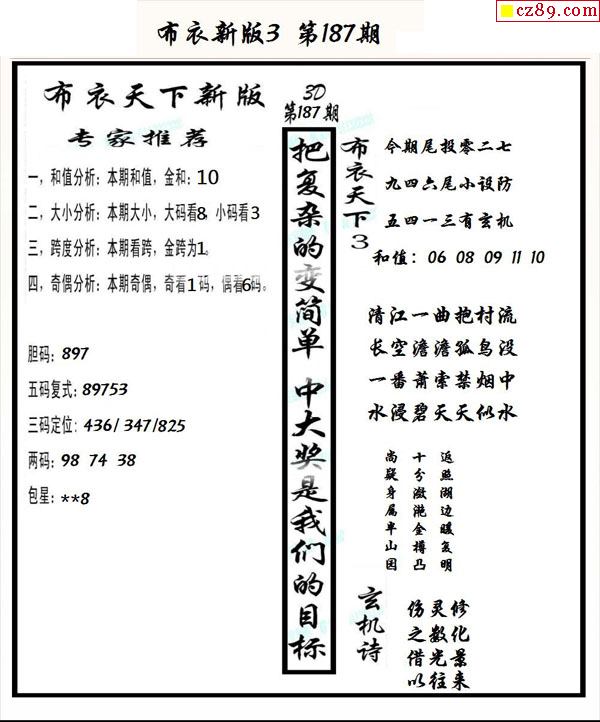 cz89.com
布衣新版3 第187期
布衣天下新版
专家推荐
一，和值分析：本期和值，金和：10
二，大小分析：本期大小，大码看8，小码看3
三，跨度分析：本期看跨，金跨为1。
四，奇偶分析：本期奇偶，奇看1码，偶看6码。
胆码：897
五码复式：89753
三码定位：436/347/825
两码：98 74 38
包星：**8
3D
第187期
把复杂的变简单 中大奖是我们的目标
布衣天下3
今期尾投零二七
九四六尾小设防
五四一三有玄机
和值：06 08 09 11 10
清江一曲抱村流
长空澹澹孤鸟没
一番萧索禁烟中
水浸碧天天似水
返照湖边暖复明
十分潋滟金樽凸
尚疑身属半山图
玄机诗
伤灵修
之数化
借光景
以往来